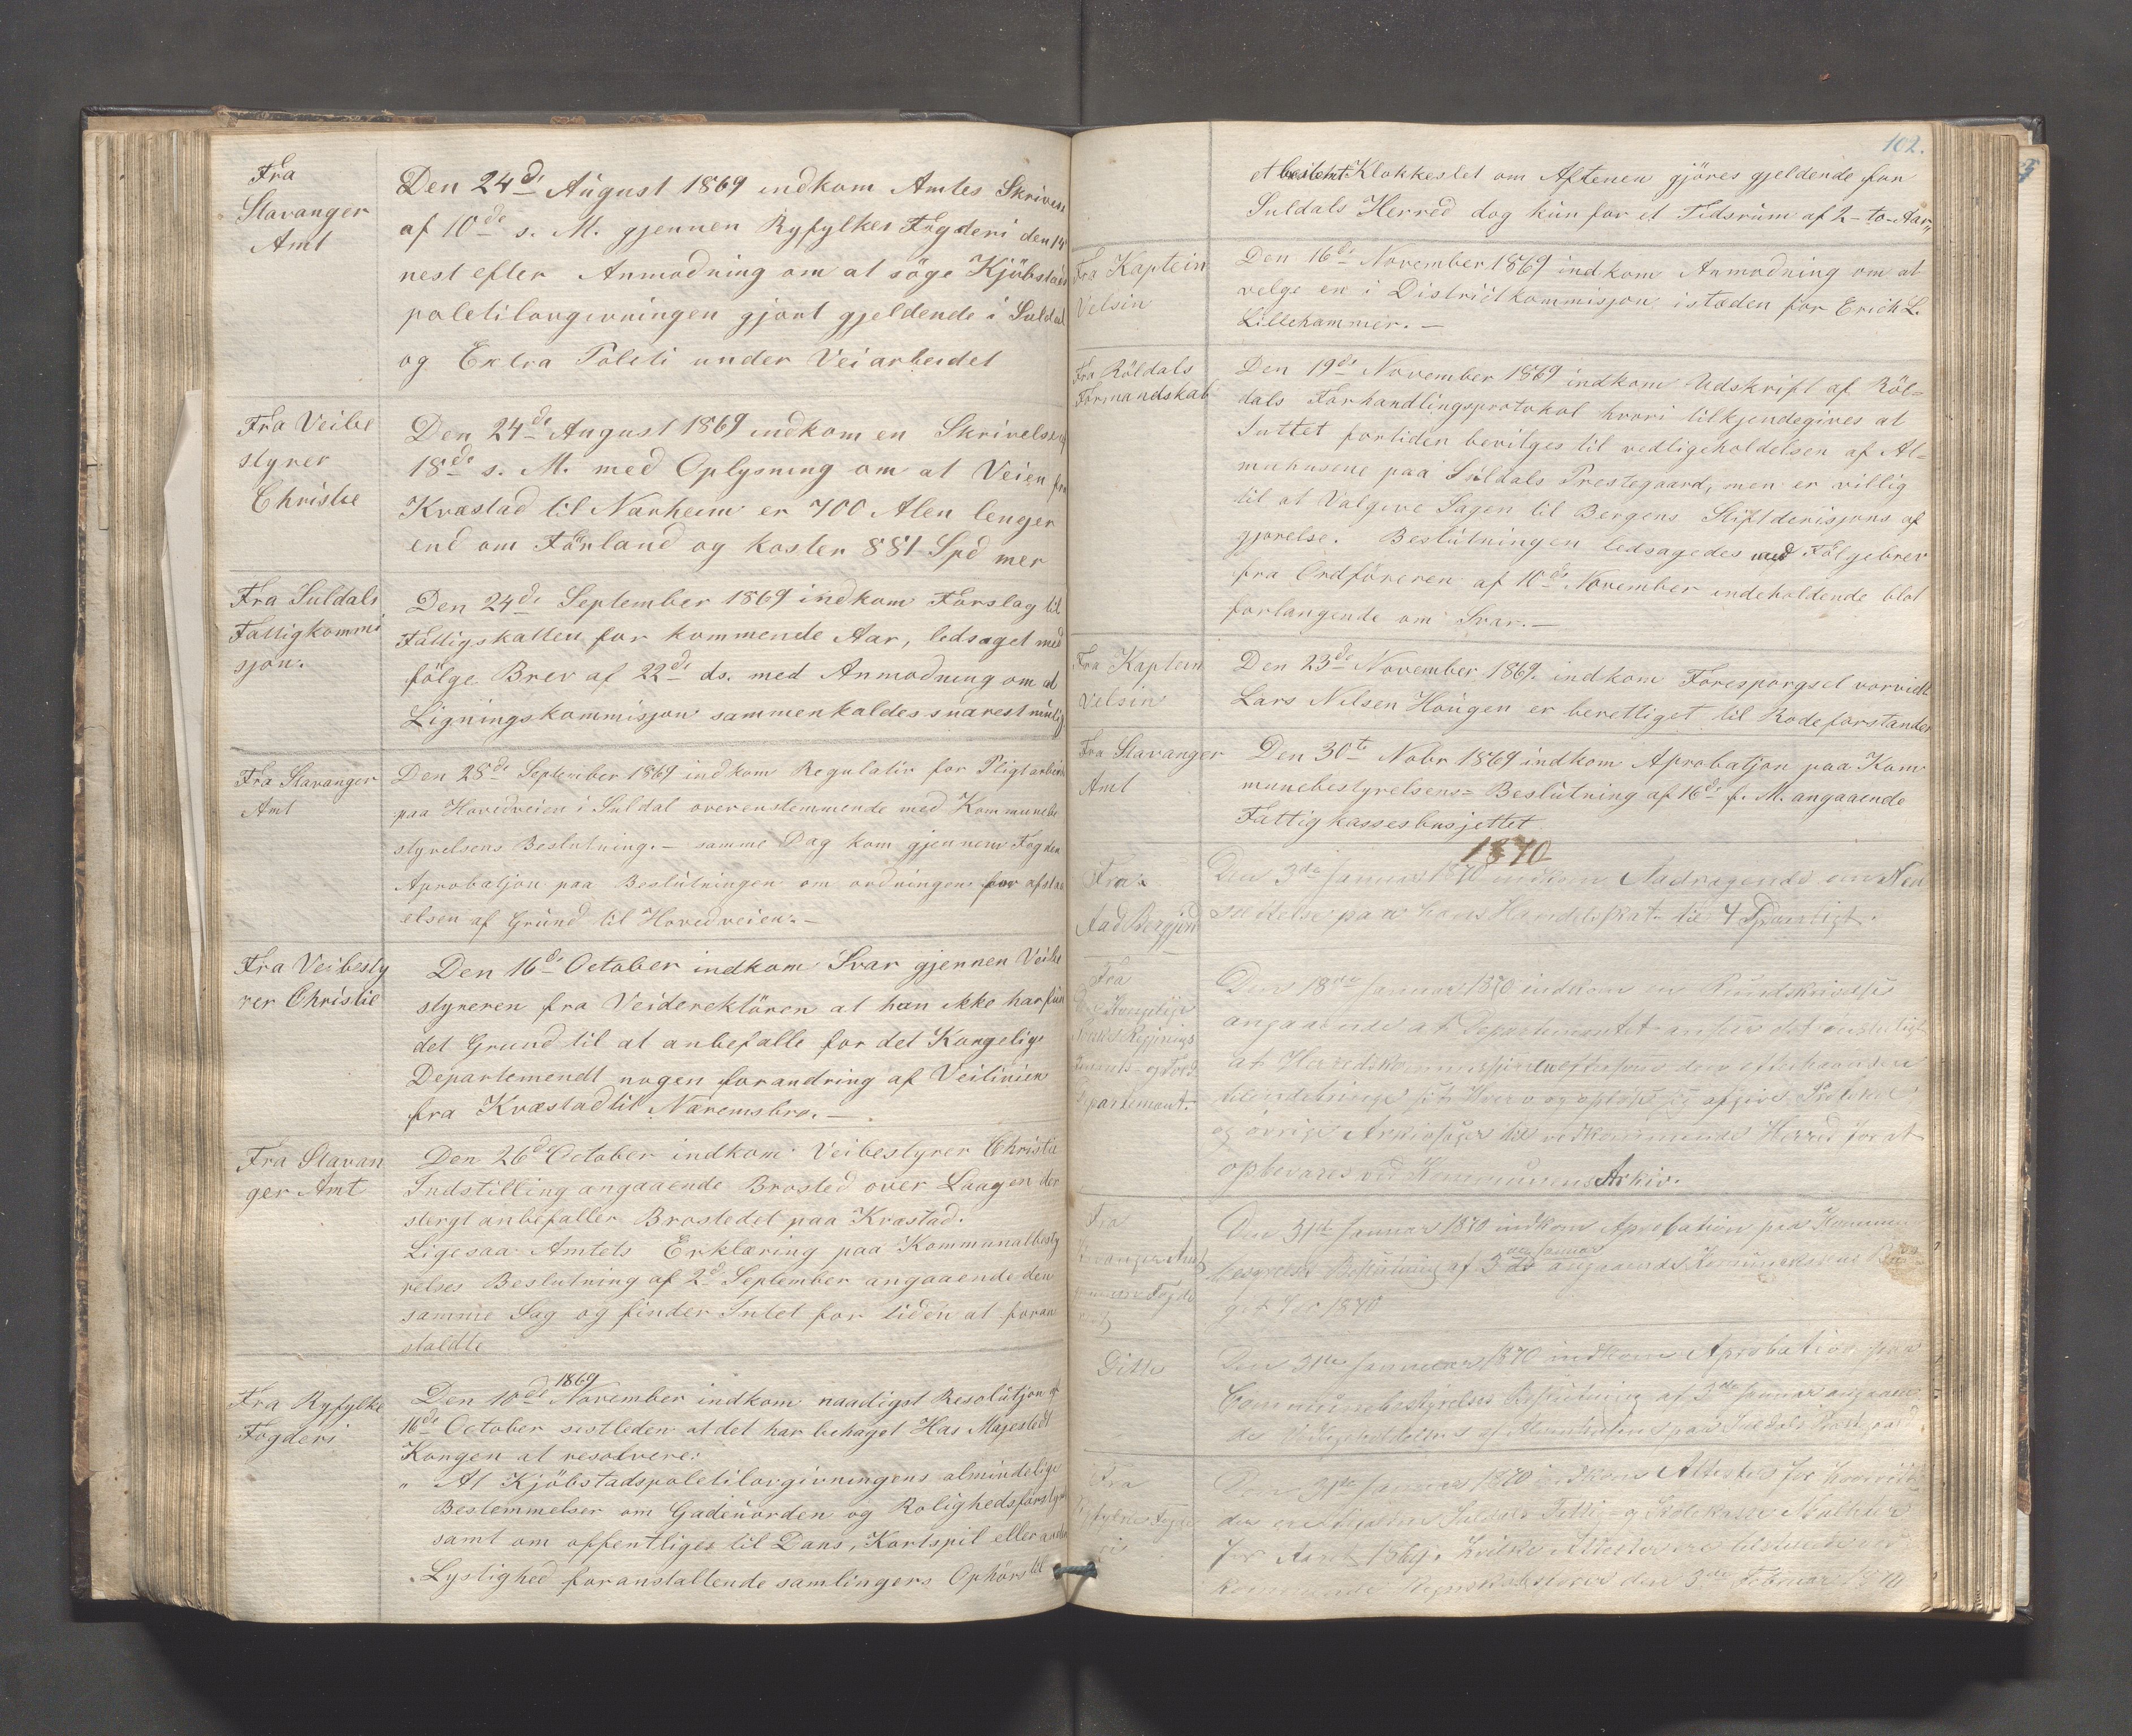 Fra
Stavanger
Amt
Den 24de August 1869 indkom Amtes Skrivelse
af 10de s. M. gjennen Ryfylkes Fogderi den 14
nest efter Anmodning om at söge Kjöbstads
poletilovgivningen gjort gjeldende i Suldal
og Extra Politi under Veiarbeidet
Fra Veibe
styrer
Christie
Den 24de August 1869 indkom en Skrivelse af
18de s. M. med Oplysning om at Veien fra
Kvæstad til Narheim er 700 Alen lenger
end om Förland og koster 881 Spd mer
Fra Suldals
Fattigkommi
sjon.
Den 24de September 1869 indkom Forslag til
Fattigskatten for kommende Aar, ledsaget med
fölge Brev af 22de ds. med Anmodning om at
Ligningskommisjon sammenkaldes snarest mülig
Fra Stavanger
Amt
Den 28de September 1869 indkom Regulativ for Pligtarbeide
paa Hovedveien i Suldal overenstemmende med Kommunebe
styrelsens Beslutning. – samme Dag kom gjennem Fogden
Aprobatjon paa Beslütningen om ordningen for afstaa
elsen af Gründ til Hovedveien. –
Fra Veibesty
rer Christie
Den 16de October indkom Svar gjennen Veibe
styreren fra Veiderektören at han ikke har fün
det Grund til at anbefalle for det Kongelige
Departemendt nogen forandring af Veilinien
fra Kvæstad til Næremsbro. –
Fra Stavan
ger Amt
Den 26d October indkom Veibestyrer Christie
Indstilling angaaende Brosted over Laagen der
stergt anbefaller Brostedet paa Kvæstad.
Ligesaa Amtets Erklæring paa Kommunalbesty
relses Beslutning af 2d September angaaende den
samme Sag og finder Intet for tiden at foran
staldte
Fra Ryfylke
Fogderi
1869
Den 10de November indkom naadigst Resolütjon af
16de October sistleden at det har behaget Has Majestedt
Kongen at resolvere:
" At Kjöbstadspoletilovgivningens almindelige
Bestemmelser om Gadeuorden og Rolighedsforstyr
samt om offentliges til Dans, Kortspil eller anden
Lystighed foranstaltende samlingers Ophörs til
102.
et bestemt Klokkeslet om Aftenen gjöres gjeldende for
Suldals Herred dog kün for et Tidsrüm af 2 – to – Aar"
Fra Kaptein
Velsin
Den 16de November 1869 indkom Anmodning om at
velge en i Distriktkommisjon istæden for Erich L.
Lillehammer. –
Fra Röldals
Formandskab
Den 19de November 1869 indkom Udskrift af Röl=
dals Forhandlingsprotokol hvori tilkjendegives at
Inttet fortiden bevilges til vedligeholdelsen af Al=
muhusene paa Süldals Prestegaard, men er villig
til at Valgive Sagen til Bergens Stiftderisjons af
gjorelse. Beslütningen ledsagedes med Fölgebrev
fra Ordföreren af 10de November indeholdende blot
forlangende om Svar. –
Fra Kaptein
Velsin
Den 23de November 1869. indkom Forespörgsel vorvidt
Lars Nilsen Haügen er berettiget til Rodeforstander
Fra Stavanger
Amt
Den 30te Nobr 1869 indkom Aprobatjon paa Kom
munebestyrelsens= Beslütning af 16de f. M. angaaende
Fattigkassesbusjettet
1870
Fra
Den 3die Januar 1870 indkom Andragende om Ned
sættelse paa hans Handelsskat til 4 Spd aarligt.
Fra
Det Kongelige
Norske Regjerings
Departement.
Den 18de Januar 1870 indkom en Rundskrivelse
angaaende at Departementet anser det
at
og övrige Arkivsager til vedkommende Herred for at
opbevares ved Kommunens Arkiv.
Fra
Stavanger Amt
Den 31te Januar 1870 indkom Aprobation paa Kommune
bestyrelses Beslutning af 3die Januar angaaende
for 1870
Ditto
Den 31te Januar 1870 indkom Aprobation paa
Communebestyrelses Beslutning af 3die Januar angaaen
de Vedligeholdelsen af Almuhusene paa Suldals Prestegaard
Fra
Ryfylke Fogde
ri
Den 31te Januar 1870 indkom Attester for hvorvidt
Suldals Fattig og Skolekasse
for Aaret 1869. hvilke Attester
den 3die Februar 1870